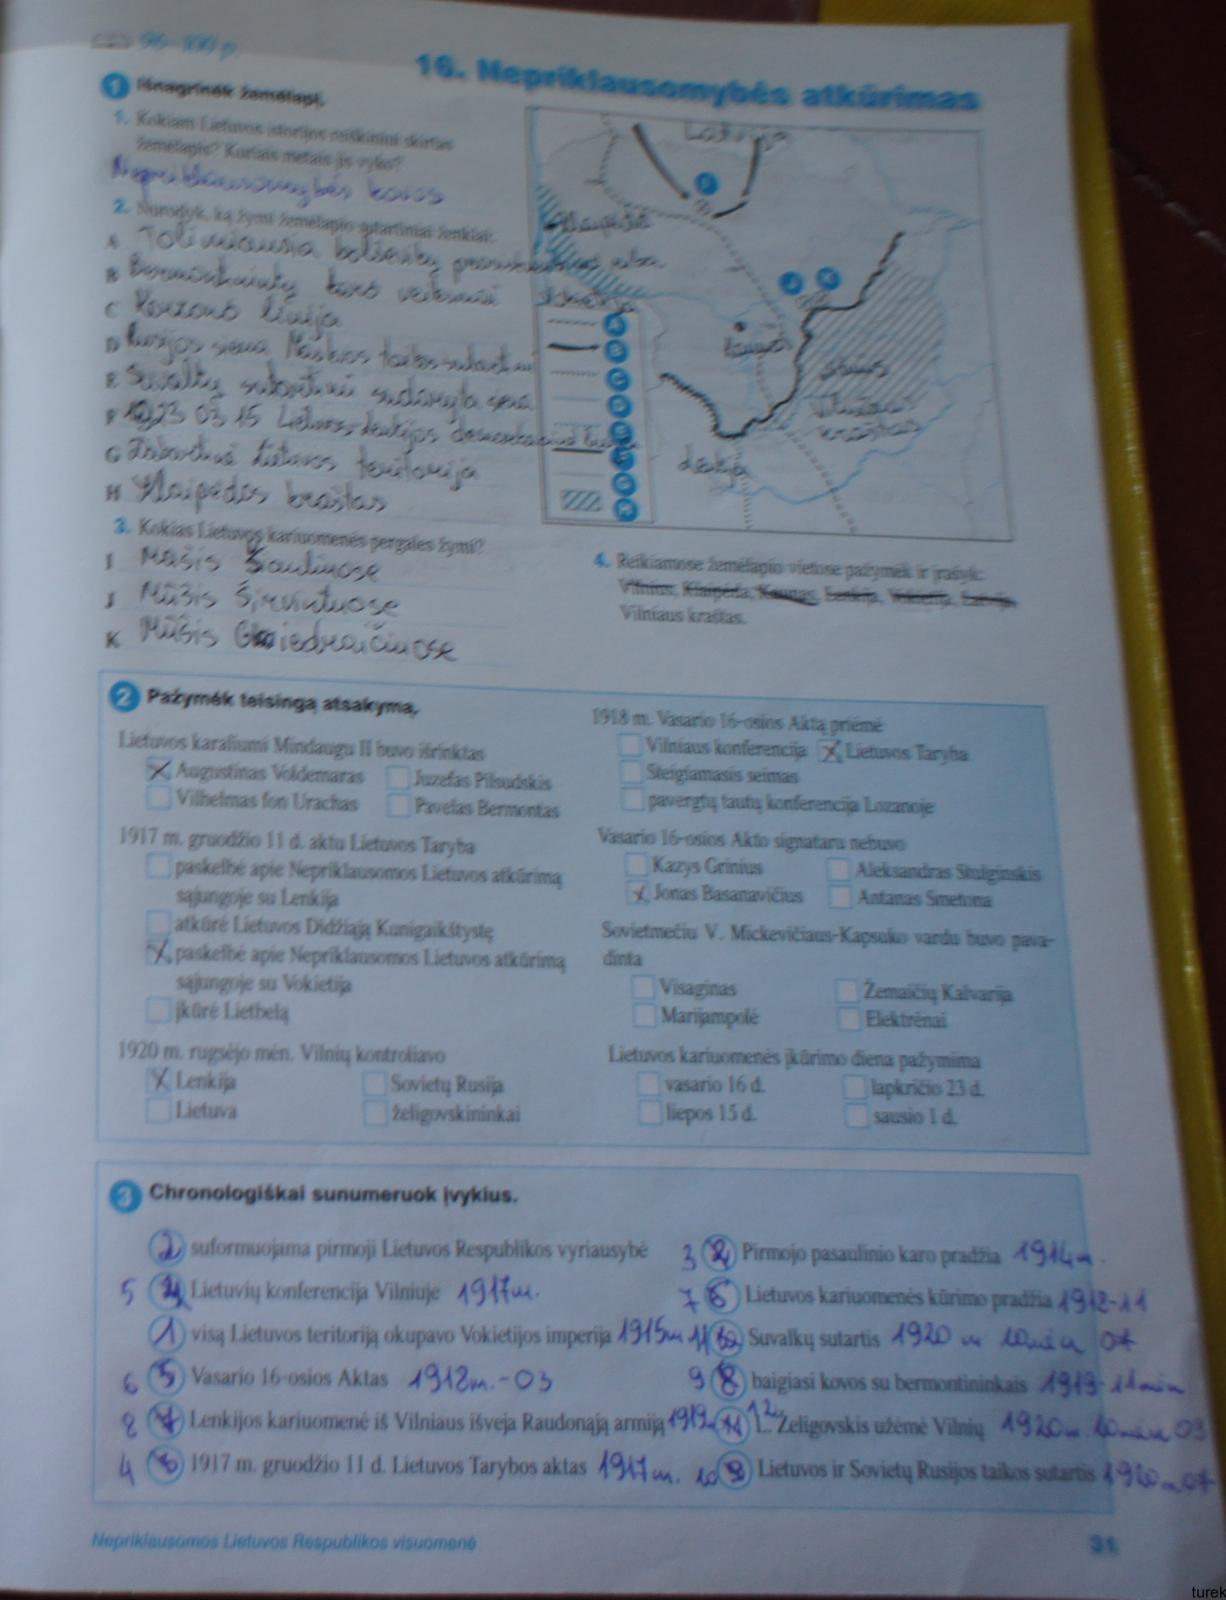 96–100 p.
16. Nepriklausomybės atkūrimas
1 Išnagrinėk žemėlapį.
1. Kokiam Lietuvos istorijos reiškiniui skirtas
žemėlapis? Kuriais metais jis vyko?
Nepriklausomybės kovos
2. Nurodyk, ką žymi žemėlapio sutartiniai ženklai:
A Tolimiausia bolševikų riba
B Bermontininkų karo veiksmai
C Kerzono linija
D Rusijos siena Maskvos taikos
E Suvalkų sutartimi sudaryta siena
F 1923 03 15 Lietuvos-Lenkijos
G Dabartinė Lietuvos teritorija
H Klaipėdos kraštas
3. Kokias Lietuvos kariuomenės pergales žymi?
I Mūšis Šiauliuose
J Mūšis Širvintuose
K Mūšis Giedraičiuose
Latvija
Klaipėda
Vokietija
Kaunas
Vilnius
Vilniaus
kraštas
Lenkija
I
J K
A
B
C
D
E
F
G
H
4. Reikiamose žemėlapio vietose pažymėk ir įrašyk:
Vilnius, Klaipėda, Kaunas, Lenkija, Vokietija, Latvija,
Vilniaus kraštas.
2 Pažymėk teisingą atsakymą.
Lietuvos karaliumi Mindaugu II buvo išrinktas
X Augustinas Voldemaras Juzefas Pilsudskis
Vilhelmas fon Urachas Pavelas Bermontas
1917 m. gruodžio 11 d. aktu Lietuvos Taryba
paskelbė apie Nepriklausomos Lietuvos atkūrimą
sąjungoje su Lenkija
atkūrė Lietuvos Didžiąją Kunigaikštystę
X paskelbė apie Nepriklausomos Lietuvos atkūrimą
sąjungoje su Vokietija
įkūrė Litbelą
1920 m. rugsėjo mėn. Vilnių kontroliavo
X Lenkija Sovietų Rusija
Lietuva želigovskininkai
1918 m. Vasario 16-osios Aktą priėmė
Vilniaus konferencija X Lietuvos Taryba
Steigiamasis seimas
pavergtų tautų konferencija Lozanoje
Vasario 16-osios Akto signataru nebuvo
Kazys Grinius Aleksandras Stulginskis
X Jonas Basanavičius Antanas Smetona
Sovietmečiu V. Mickevičiaus-Kapsuko vardu buvo pava-
dinta
Visaginas Žemaičių Kalvarija
Marijampolė Elektrėnai
Lietuvos kariuomenės įkūrimo diena pažymima
vasario 16 d. lapkričio 23 d.
liepos 15 d. sausio 1 d.
3 Chronologiškai sunumeruok įvykius.
2 suformuojama pirmoji Lietuvos Respublikos vyriausybė
5 Lietuvių konferencija Vilniuje 1917m.
1 visą Lietuvos teritoriją okupavo Vokietijos imperija 1915m
6 5 Vasario 16-osios Aktas 1918m.-03
8 7 Lenkijos kariuomenė iš Vilniaus išveja Raudonąją armiją 1919
4 1917 m. gruodžio 11 d. Lietuvos Tarybos aktas 1917m.
3 Pirmojo pasaulinio karo pradžia 1914m.
7 6 Lietuvos kariuomenės kūrimo pradžia 1918-11
11 Suvalkų sutartis 1920 m 07
9 8 baigiasi kovos su bermontininkais 1919
12 L. Želigovskis užėmė Vilnių 1920m. 09
10 9 Lietuvos ir Sovietų Rusijos taikos sutartis 1920m 07
Nepriklausomos Lietuvos Respublikos visuomenė
31
turek